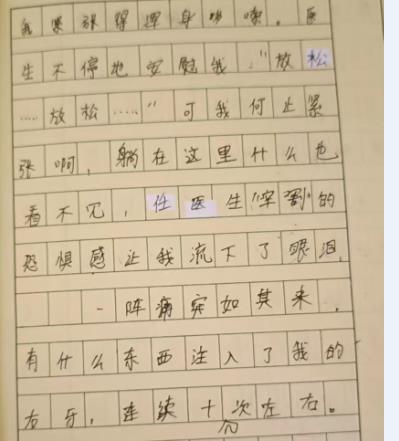 我紧张得浑身哆嗦。医
生不停地安慰我:“放松
……放松……”可我何止紧
张啊,躺在这里什么也
看不见,任医生“宰割”的
恐惧感让我流下了眼泪。
一阵痛突如其来,
有什么东西注入了我的
右牙,连续十次左右。